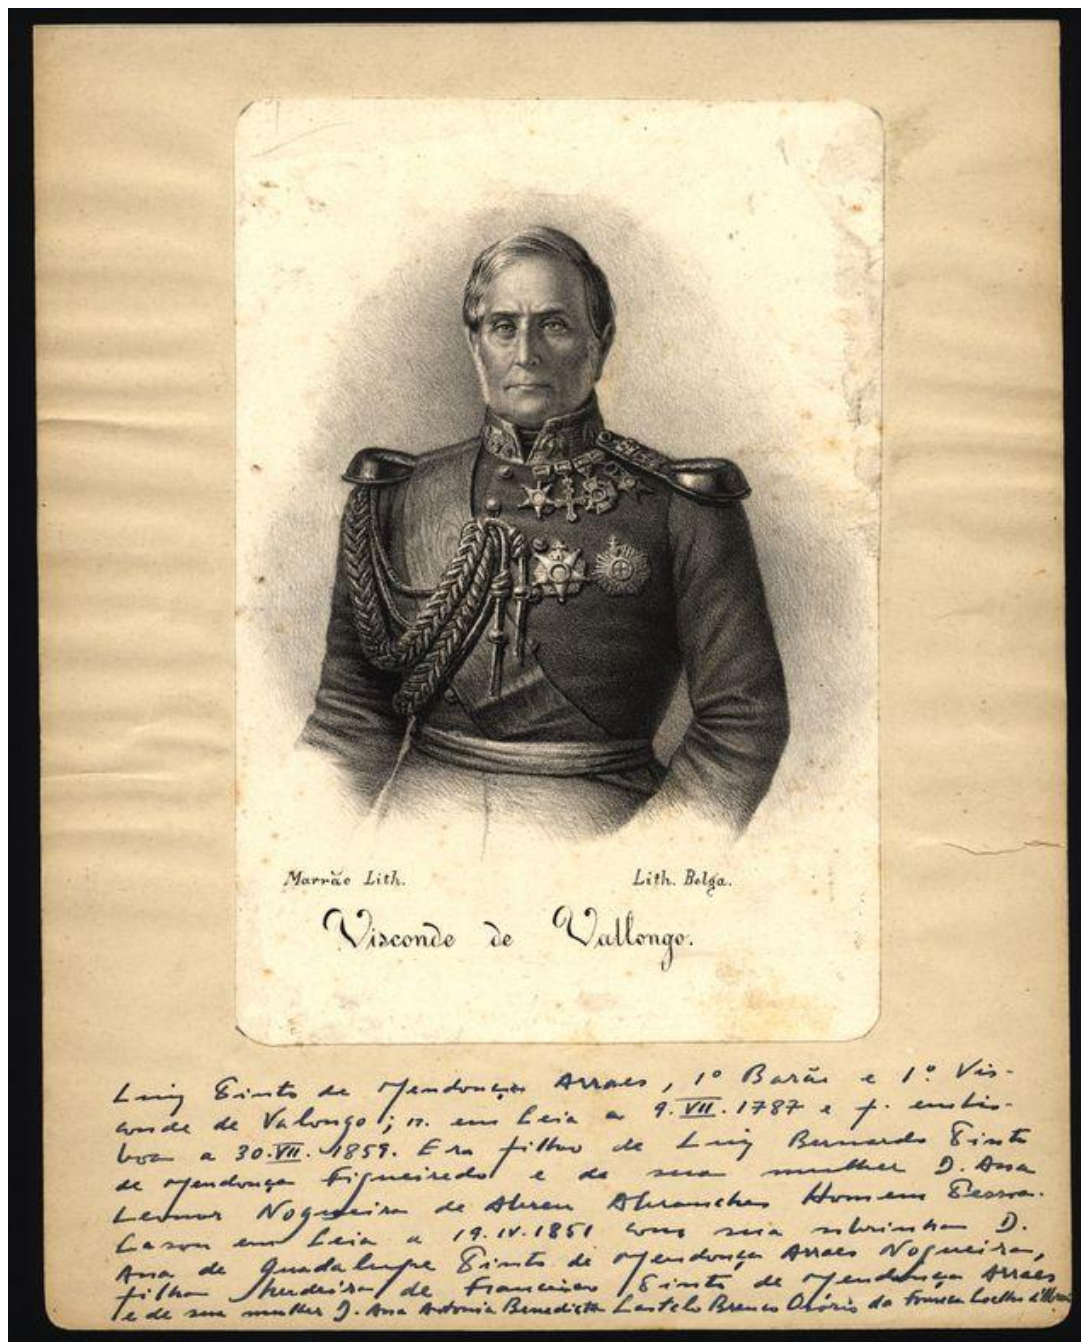 Marrão Lith. Lith. Belga.
Visconde de Vallongo.
Luiz Pinto de Mendonça Arraes, 1º Barão e 1º Vis-
conde de Valongo; n. em Ceia a 9.VII.1787 e f. em Lis-
boa a 30.VII.1859. Era filho de Luiz Bernardo Pinto
de Mendonça Figueiredo e de sua mulher D. Ana
Leonor Nogueira de Abreu Abranches Homem Pessoa.
Casou em Ceia a 19.IV.1851 com sua sobrinha D.
Ana de Guadalupe Pinto de Mendonça Arraes Nogueira,
filha herdeira de Francisco Pinto de Mendonça Arraes
e de sua mulher D. Ana Antonia Benedicta Castelo Branco Osório da Fonseca Coelho